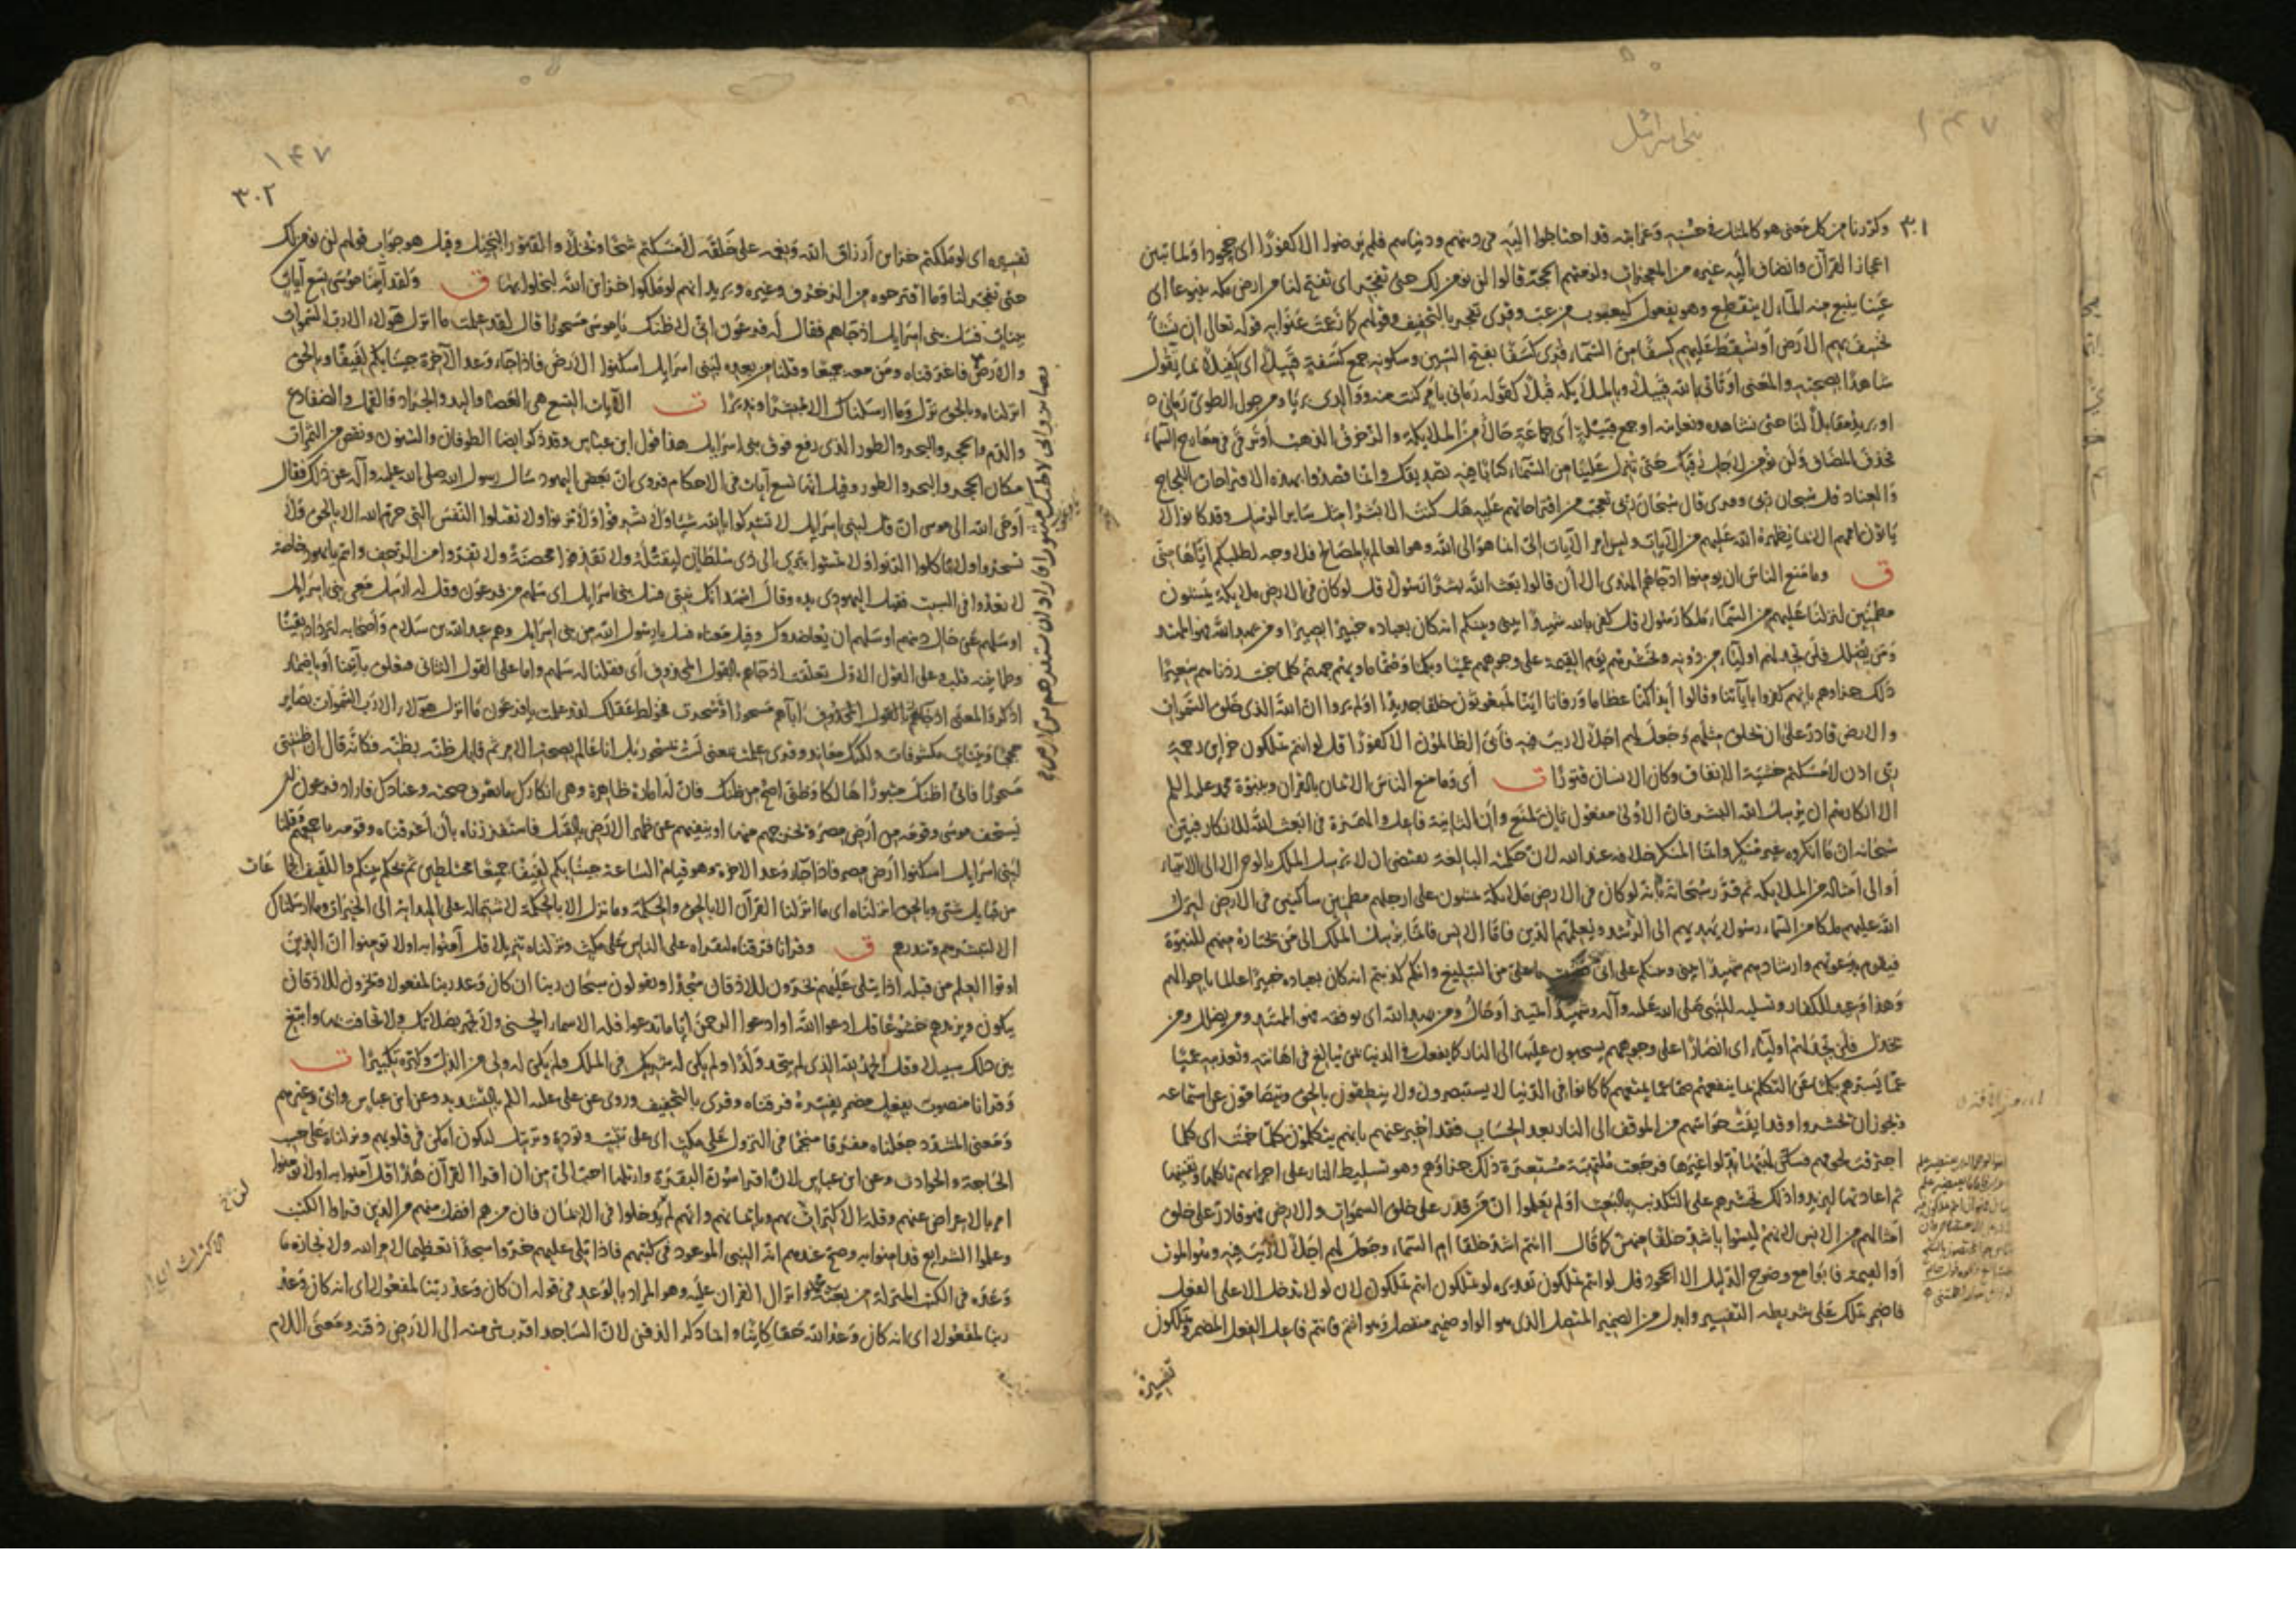 بنی اسرائیل
١٤٧
٣٠١
وكررنا من كل معنى هو كالمثل في حسنه وغرابته قد احتاجوا اليه في دينهم ودنياهم فلم يرضوا الا كفورا اى جحودا ولما تبين
اعجاز القرآن وانضاف اليه غيره من المعجزات ولزمتهم الحجة قالوا لن نؤمن لك حتى تفجر اى تفتح لنا من ارض مكة ينبوعا اى
عينا ينبع منه الماء لا ينقطع وهو يفعول كيعبوب من عب وقرئ تفجر بالتخفيف وقولهم كما زعمت عنوا به قوله تعالى ان نشأ
نخسف بهم الارض او نسقط عليهم كسفا من السماء قرئ كسفا بفتح السين وسكونه جمع كسفة قبيلا اى كفيلا بما يقول
شاهدا بصحته والمعنى او تأتى بالله قبيلا وبالملائكة قبلا كقوله رمانى بامر كنت منه ووالدى بريا ومن جول الطوى رمانى
او يريد مقابلا لنا حتى نشاهده ونعاينه او جمع قبيلة اى جماعة حالا من الملائكة والزخرف الذهب او ترقى في معارج السماء
فحذف المضاف ولن نؤمن لاجل رقيك حتى تنزل علينا من السماء كتابا فيه تصديقك وانما قصدوا بهذه الاقتراحات اللجاج
والعناد قل سبحان ربى وقرئ قال سبحان ربى تعجب من اقتراحاتهم عليه هل كنت الا بشرا مثل سائر الرسل وقد كانوا لا
يأتون اممهم الا بما يظهره الله عليهم من الآيات وليس امر الآيات الى انما هو الى الله وهو العالم بالمصالح فلا وجه لطلبكم اياها منى
ق وما منع الناس ان يومنوا اذ جاءهم الهدى الا ان قالوا ابعث الله بشرا رسولا قل لو كان في الارض ملائكة يمشون
مطمئنين لنزلنا عليهم من السماء ملكا رسولا قل كفى بالله شهيدا بينى وبينكم انه كان بعباده خبيرا بصيرا ومن يهد الله فهو المهتد
ومن يضلل فلن تجد لهم اولياء من دونه ونحشرهم يوم القيمة على وجوههم عميا وبكما وصما مأويهم جهنم كلما خبت زدناهم سعيرا
ذلك جزاؤهم بانهم كفروا باياتنا وقالوا أئذا كنا عظاما ورفاتا ائنا لمبعوثون خلقا جديدا اولم يروا ان الله الذى خلق السموات
والارض قادر على ان يخلق مثلهم وجعل لهم اجلا لا ريب فيه فأبى الظالمون الا كفورا قل لو انتم تملكون خزاين رحمة
ربى اذن لامسكتم خشية الانفاق وكان الانسان قتورا ت اى وما منع الناس الايمان بالقران وبنبوة محمد عليه السلم
الا انكارهم ان يرسل الله البشر فان الاولى مفعول ثان لمنع وان الثانية فاعل والهمزة في ابعث الله للانكار فبين
سبحانه ان ما انكروه غير منكر وانما المنكر خلافه عند الله لان حكمته البالغة تقتضى ان لا يرسل الملك بالوحى الا الى الانبياء
او الى امثاله من الملائكة ثم قرر سبحانه بانه لو كان في الارض ملائكة يمشون على ارجلهم مطمئنين ساكنين في الارض لنزل
الله عليهم ملكا من السماء رسولا يهديهم الى الرشد ويعلمهم الدين فاما الانس فانما يرسل الملك الى من يختاره منهم للنبوة
فيقوم بدعوتهم وارشادهم شهيدا بينى وبينكم على انى بلغت ما على من التبليغ وانكم كذبتم انه كان بعباده خبيرا عالما باحوالهم
وهذا وعيد للكفار وتسلية للنبى صلى الله عليه وآله وشهيدا تمييز او حال ومن يهد الله اى يوفقه فهو المهتد ومن يضلل ومن
يخذل فلن تجد لهم اولياء اى انصارا على وجوههم يسحبون عليها الى النار كما يفعل في الدنيا بمن يبالغ في اهانته وتعذيبه عميا
عما يسرهم بكما عن التكلم بما ينفعهم صما عما يمتعهم كما كانوا في الدنيا لا يستبصرون ولا ينطقون بالحق ويتصامون عن استماعه
ويجوز ان يحشروا وقد ايفت حواسهم من الموقف الى النار بعد الحساب فقد اخبر عنهم بانهم يتكلمون كلما خبت اى كلما
احترقت لحومهم فسكن لهبها بدلوا غيرها فرجعت ملتهبة مستعرة ذلك جزاؤهم وهو تسليط النار على اجزائهم تاكلها وتفنيها
ثم اعادتها ليزيد ذلك تحسرهم على التكذيب بالبعث اولم يعلموا ان من قدر على خلق السموات والارض فهو قادر على خلق
امثالهم من الانس لانهم ليسوا باشد خلقا منهن كما قال أانتم اشد خلقا ام السماء وجعل لهم اجلا لا ريب فيه وهو الموت
او القيمة فابوا مع وضوح الدليل الا الجحود قل لو انتم تملكون تقديره لو تملكون انتم تملكون لان لو لا تدخل الا على الفعل
فاضمر تملك على شريطة التفسير وابدل من الضمير المتصل الذى هو الواو ضمير منفصل وهو انتم فانتم فاعل الفعل المضمر وتملكون
تفسيره
١٤٧
٣٠٢
تفسيره اى لو ملكتم خزاين أرزاق الله ونعمه على خلقه لامسكتم شحا وبخلا والقتور البخيل وقيل هو جواب قولهم لن نؤمن لك
حتى تفجر لنا وما اقترحوه من الزخرف وغيره ويريد انهم لو ملكوا خزاين الله لبخلوا بها ق ولقد آتينا موسى تسع آيات
بينات فسئل بنى اسرايل اذ جاءهم فقال له فرعون انى لاظنك يا موسى مسحورا قال لقد علمت ما انزل هؤلاء الا رب السموات
والارض فاغرقناه ومن معه جميعا وقلنا من بعده لبنى اسرايل اسكنوا الارض فاذا جاء وعد الآخرة جئنا بكم لفيفا وبالحق
انزلناه وبالحق نزل وما ارسلناك الا مبشرا ونذيرا ت الآيات التسع هى العصا واليد والجراد والقمل والضفادع
والدم والحجر والبحر والطور الذى رفع فوق بنى اسرايل هذا قول ابن عباس وقد ذكر ايضا الطوفان والسنون ونقص من الثمرات
مكان الحجر والبحر والطور وقيل انها تسع آيات في الاحكام فروى ان بعض اليهود سأل رسول الله صلى الله عليه وآله عن ذلك فقال
أوحى الله الى موسى ان قل لبنى اسرايل لا تشركوا بالله شيئا ولا تسرفوا ولا تزنوا ولا تقتلوا النفس التى حرم الله الا بالحق ولا
تسحروا ولا تاكلوا الربوا ولا تمشوا ببرى الى ذى سلطان ليقتله ولا تقذفوا محصنة ولا تفروا من الزحف وانتم يا يهود خاصة
لا تعدوا في السبت فقبل اليهودى يده وقال اشهد انك نبى فسل بنى اسرايل اى سلهم من فرعون وقل له ارسل معى بنى اسرايل
او سلهم عن حال دينهم او سلهم ان يعاضدوك وقيل معناه فسل يا رسول الله من بنى اسرايل وهم عبد الله بن سلام وأصحابه لتزداد يقينا
وطمانينة قلب وعلى القول الاول تعلقت اذ جاءهم بالقول المحذوف أى فقلنا له سلهم واما على القول الثانى فتعلق بآتينا أو باضمار
اذكر والمعنى اذ جاءهم بالقول المحذوف آباءهم مسحورا سحرت فخولط عقلك لقد علمت يا فرعون ما انزل هؤلاء الا رب السموات بصاير
حججا وبينات مكشوفات ولكنك معاند وقرئ علمت بمعنى لست بمسحور بل انا عالم بصحة الامر ثم قابل ظنه بظنه فكانه قال ان ظننتنى
مسحورا فانى اظنك مثبورا هالكا وظنى اصح من ظنك فان له امارة ظاهرة وهى انكارك ما تعرف صحته وعنادك فاراد فرعون ان
يستخف موسى وقومه من أرض مصر ويخرجهم منها او ينفيهم عن ظهر الارض بالقتل فاستفززناه بأن أغرقناه وقومه باجمعهم وقلنا
لبنى اسرايل اسكنوا ارض مصر فاذا جاء وعد الاخرة وهو قيام الساعة جئنا بكم لفيفا جميعا مختلطين ثم نحكم بينكم واللفيف الجماعات
من قبايل شتى وبالحق انزلناه اى ما انزلنا القرآن الا بالحق والحكمة وما نزل الا بالحكمة لاشتماله على الهداية الى الخيرات وما ارسلناك
الا لتبشرهم وتنذرهم ق وقرانا فرقناه لتقراه على الناس على مكث ونزلناه تنزيلا قل آمنوا به او لا تومنوا ان الذين
اوتوا العلم من قبله اذا يتلى عليهم يخرون للاذقان سجدا ويقولون سبحان ربنا ان كان وعد ربنا لمفعولا ويخرون للاذقان
يبكون ويزيدهم خشوعا قل ادعوا الله او ادعوا الرحمن ايا ما تدعوا فله الاسماء الحسنى ولا تجهر بصلاتك ولا تخافت بها وابتغ
بين ذلك سبيلا وقل الحمد لله الذى لم يتخذ ولدا ولم يكن له شريك في الملك ولم يكن له ولى من الذل وكبره تكبيرا ت
وقرانا منصوب بفعل مضمر يفسره فرقناه وقرئ بالتخفيف وروى عن على عليه السلم بالتشديد وعن ابن عباس وابى وغيرهم
ومعنى المشدد جعلناه مفرقا منجما في النزول على مكث اى على تثبت وتؤدة وترتيل ليكون امكن في قلوبهم ونزلناه على حسب
الحاجة والحوادث وعن ابن عباس لان اقرا سورة البقرة وارتلها احب الى من ان اقرا القرآن هذا قل آمنوا به او لا تومنوا
امر بالاعراض عنهم وقلة الاكتراث بهم وبايمانهم وانهم لم يدخلوا في الايمان فان من هم افضل منهم من الذين قراوا الكتب
وعلموا الشرايع قد امنوا به وصح عندهم انه النبى الموعود في كتبهم فاذا تلى عليهم خروا سجدا تعظيما لامر الله ولانجازه ما
وعده في الكتب المنزلة من بعثة محمد وانزال القران عليه وهو المراد بالوعد في قوله ان كان وعد ربنا لمفعولا اى انه كان وعد
ربنا لمفعولا اى انه كان وعد الله حقا كاينا وانما ذكر الذقن لان الساجد اقرب شئ منه الى الارض ذقنه ومعنى اللام